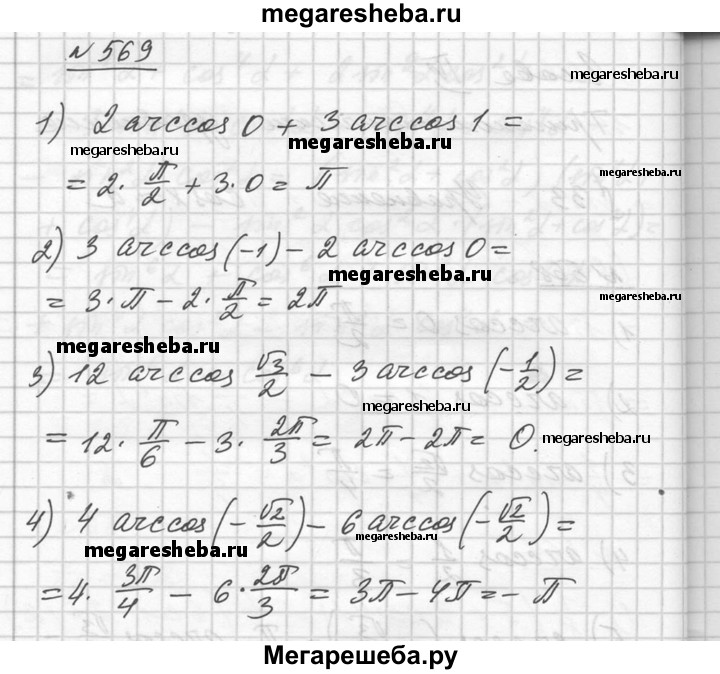 megaresheba.ru
№ 569
megaresheba.ru
1) 2 arccos 0 + 3 arccos 1 =
megaresheba.ru
megaresheba.ru
= 2· π/2 + 3·0 = π
megaresheba.ru
2) 3 arccos (-1) - 2 arccos 0 =
megaresheba.ru
= 3·π - 2· π/2 = 2π
megaresheba.ru
megaresheba.ru
3) 12 arccos √3/2 - 3 arccos (-1/2) =
megaresheba.ru
= 12· π/6 - 3· 2π/3 = 2π - 2π = 0.
megaresheba.ru
4) 4 arccos (-√2/2) - 6 arccos (-√2/2) =
megaresheba.ru
megaresheba.ru
= 4· 3π/4 - 6· 2π/3 = 3π - 4π = - π
Мегарешеба.ру